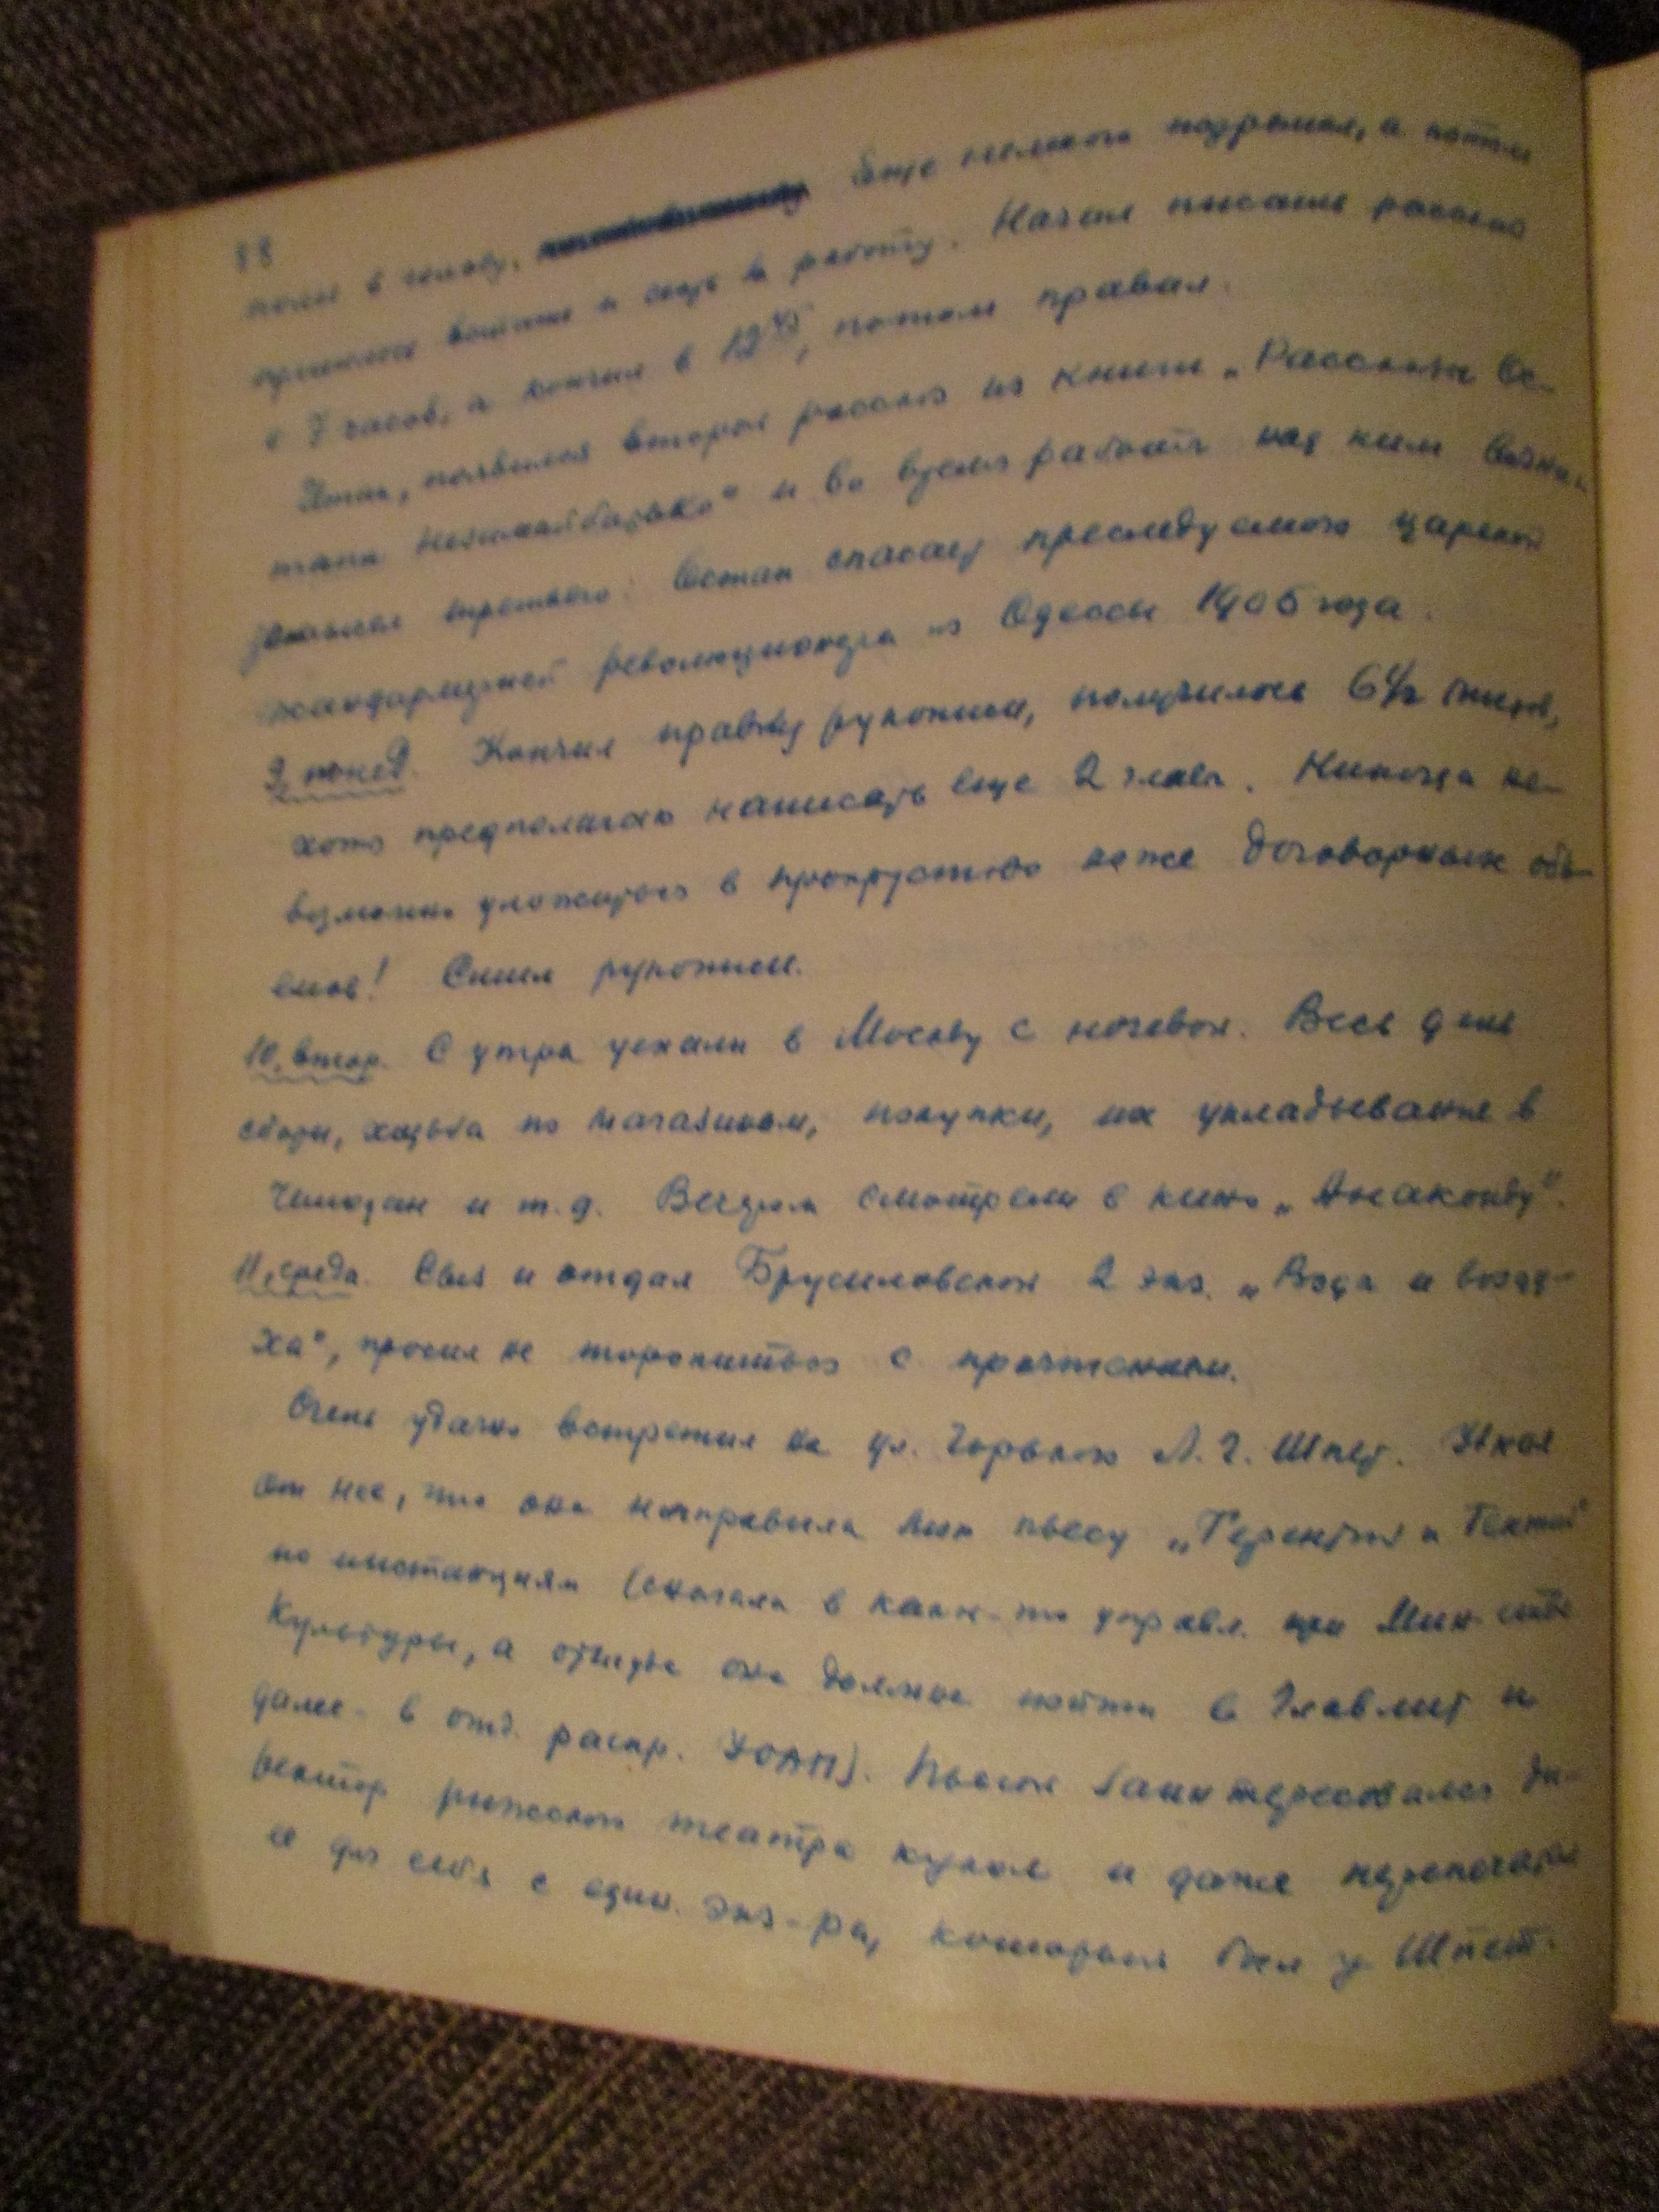 88
в голову. Еще немного подремал, а потом
пришлось встать и сесть за работу. Начал писать рассказ
с 7 часов, а кончил в 12 45, потом правил.
Итак, появился второй рассказ из книги „Рассказы Ос-
тапа Незимайбатько" и во время работы над ним
третьего: Остап спасает преследуемого царской
жандармерией революционера из Одессы 1905 года.
9, понед. Кончил правку рукописи, получилось 6 1/2 листов,
хотя предполагаю написать еще 2 главы. Никогда не-
возможно уложиться в прокрустово ложе договорных объ-
емов! Сшил рукописи.
10, втор. С утра уехали в Москву с ночевой. Весь день
сборы, ходьба по магазинам, покупки, их укладывание в
чемодан и т.д. Вечером смотрели в кино „Анаконду".
11, среда. Свез и отдал Брусиловской 2 экз. „Вода и возду-
ха", просил не торопиться с прочтением.
Очень удачно встретил на ул. Горького Л. Г. Шпет. Узнал
от нее, что она направила мою пьесу „Терентий и
по инстанциям (сначала в какое-то управл. при Мин-стве
Культуры, а оттуда она должна пойти в Главлит и
далее - в отд. распр. УОАП). Пьесой заинтересовался ди-
ректор рижского театра кукол и даже перепечатал
ее для себя с един. экз-ра, который был у Шпет.